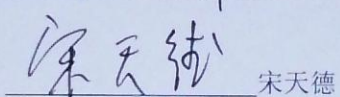 宋天德 宋天德